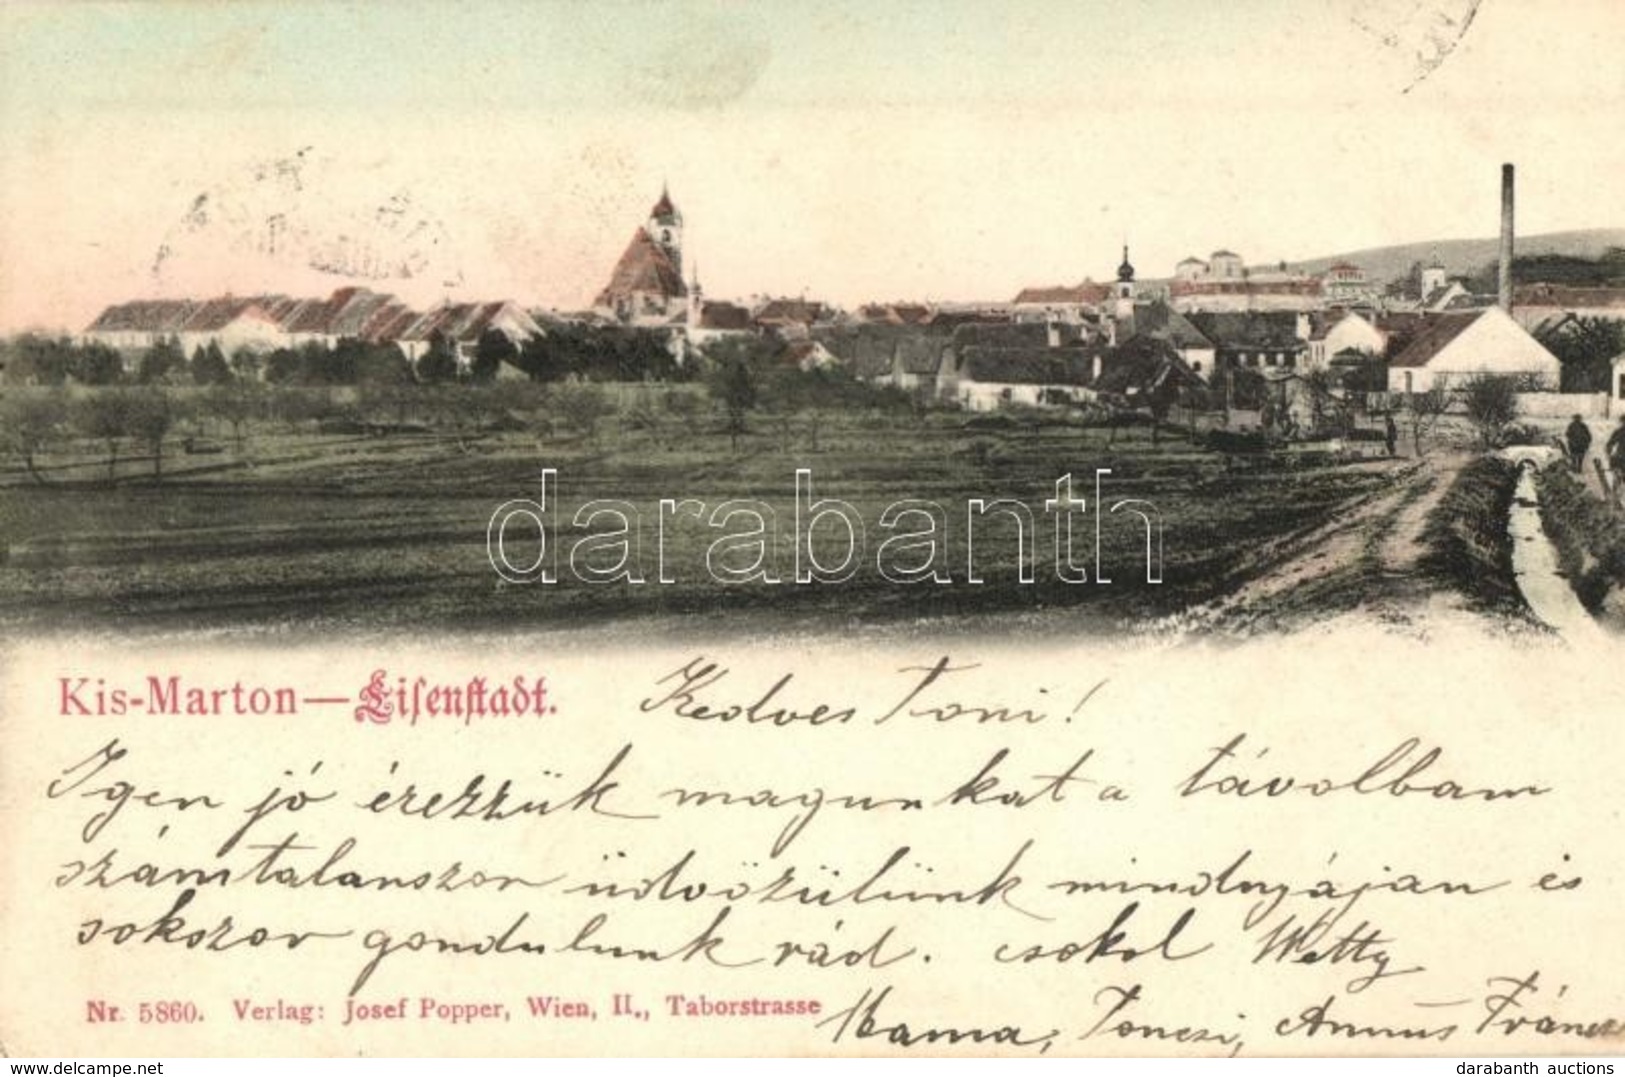 darabanth
Kis-Marton—Eisenstadt.
Kedves Toni!
Igen jó érezzük magunkat a távolbam
számtalanszor üdvözülünk mindnyájan és
sokszor gondulunk rád. csokol Netty
Nr. 5860. Verlag: Josef Popper, Wien, II., Taborstrasse
Mama, Tonczi, Annus
Copyright darabanth.com
darabanth auctions